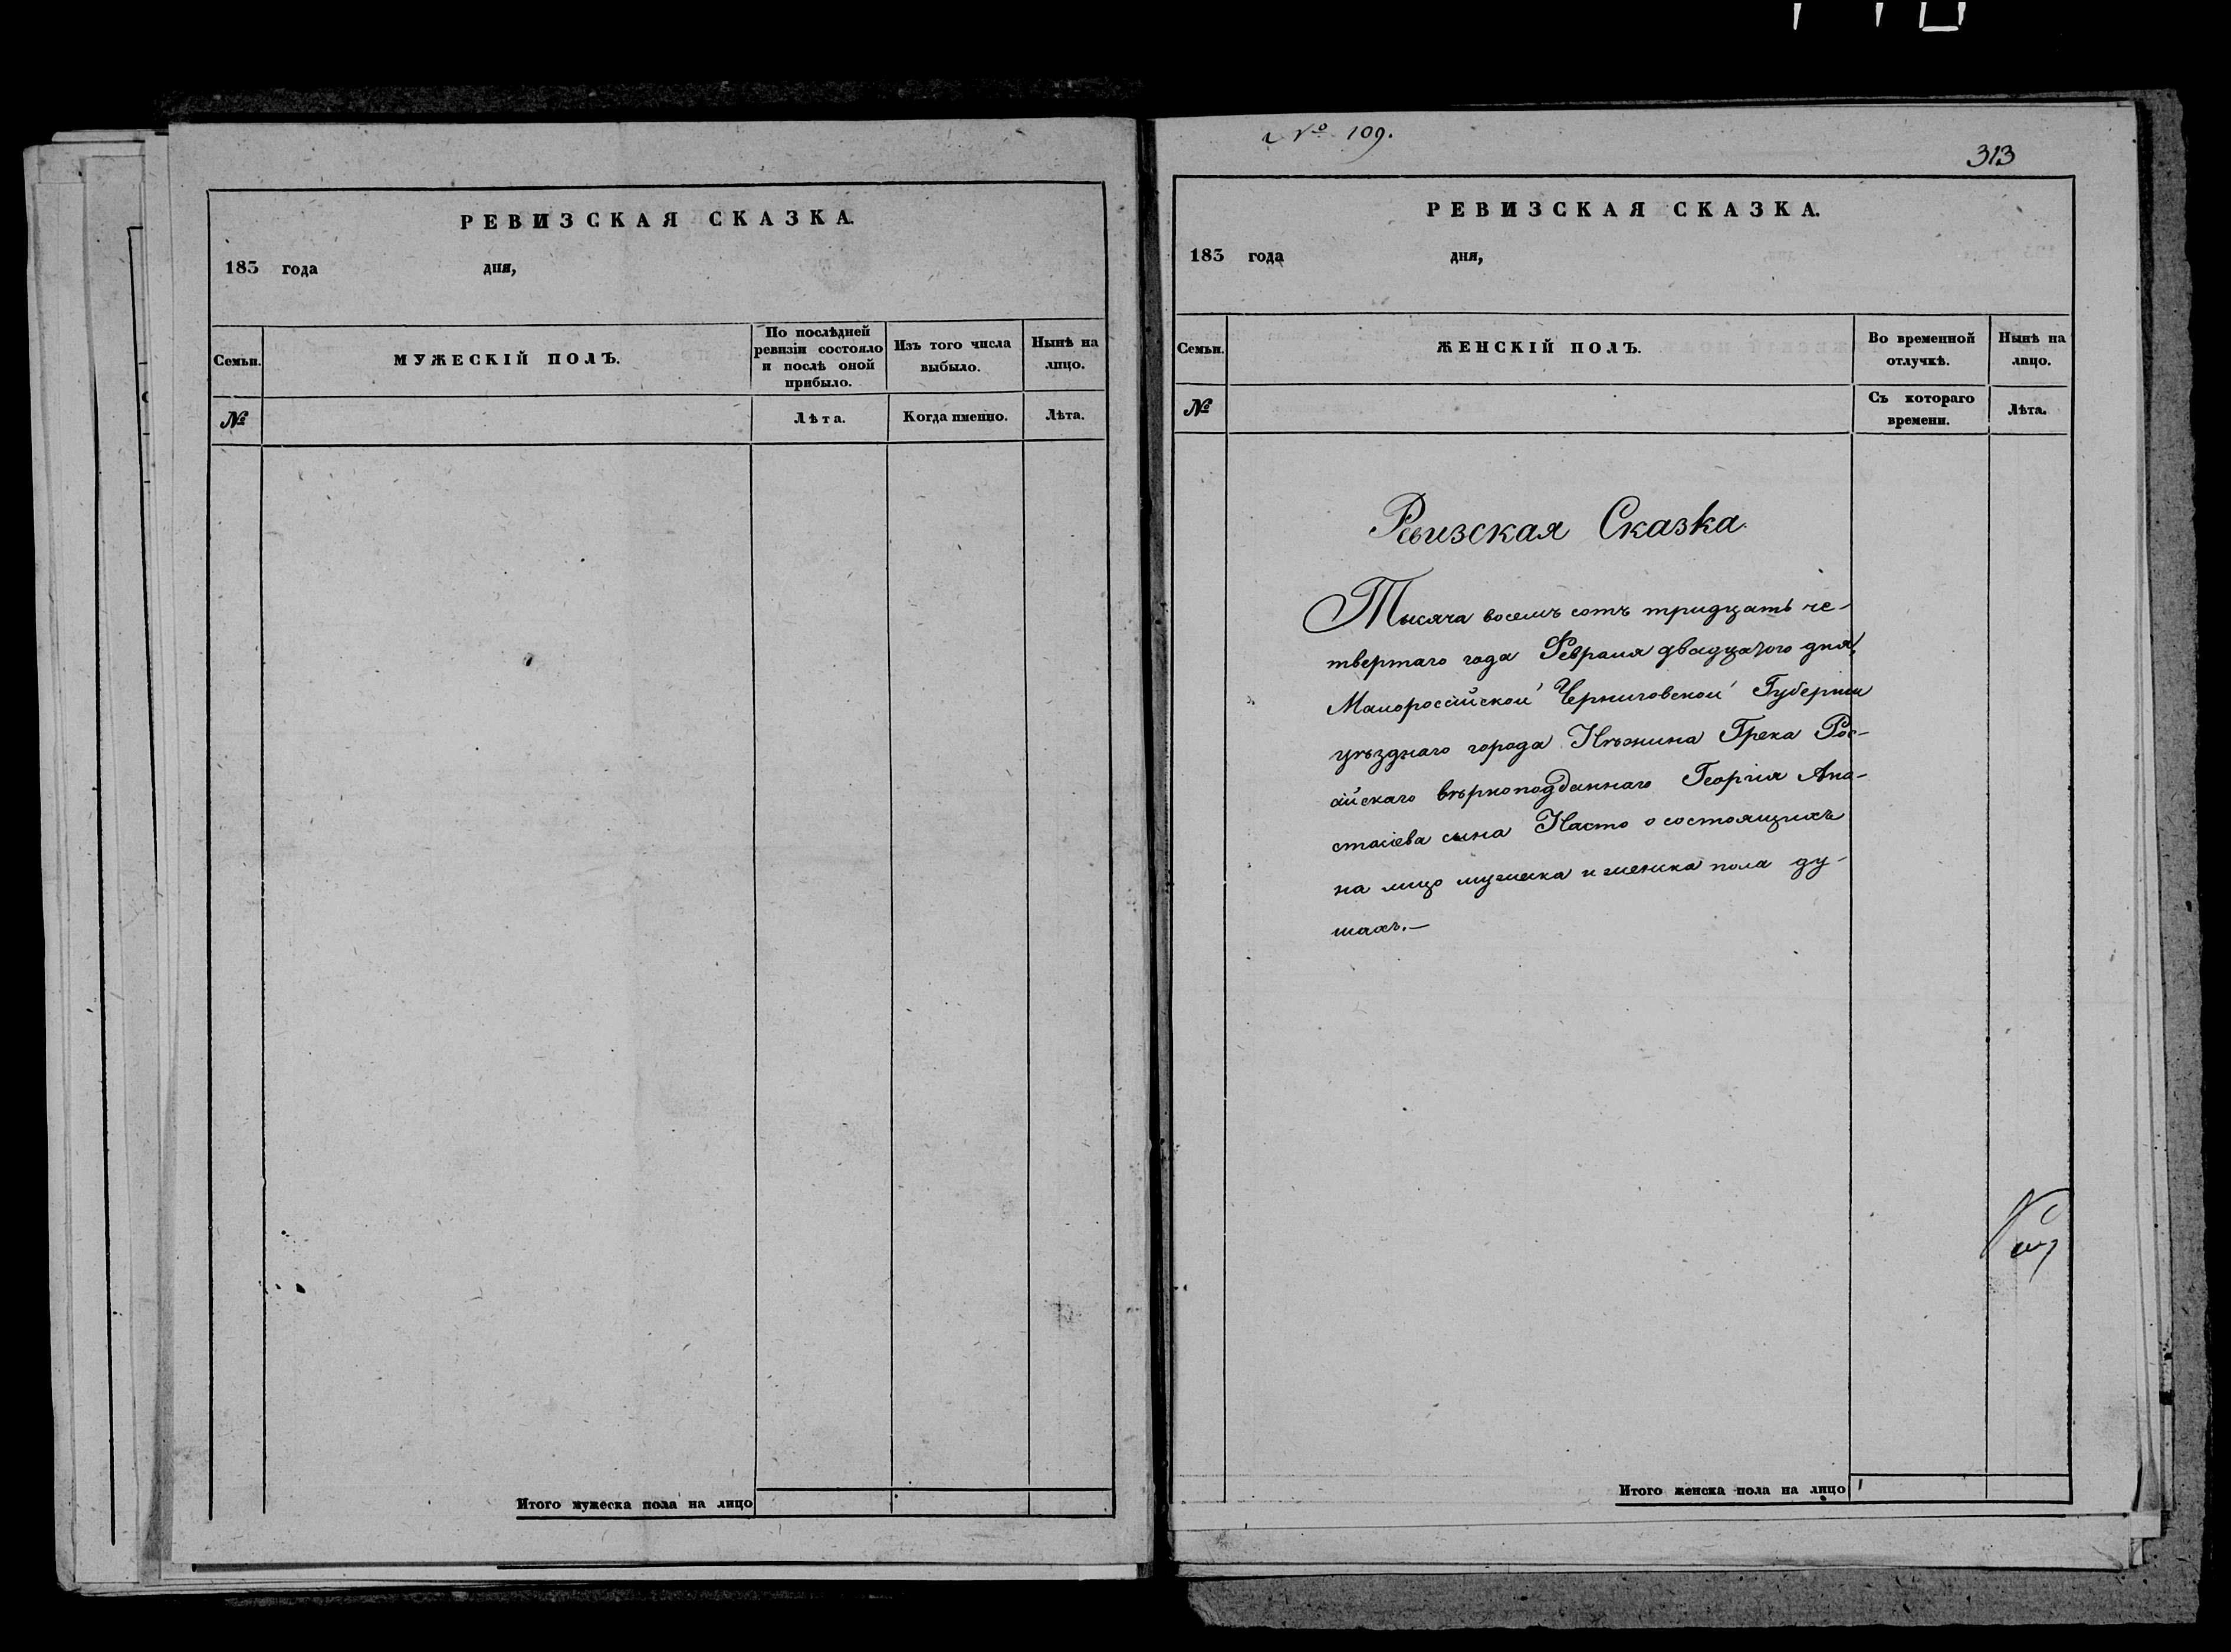 РЕВИЗСКАЯ СКАЗКА.
183 года дня,
Семьи.
МУЖЕСКІЙ ПОЛЪ.
По послѣдней
ревизіи состояло
и послѣ оной
прибыло.
Изъ того числа
выбыло.
Нынѣ на
лицо.
№
Лѣта.
Когда именно.
Лѣта.
Итого мужеска пола на лицо
№ 109.
313
РЕВИЗСКАЯ СКАЗКА.
183 года дня,
Семьи.
ЖЕНСКІЙ ПОЛЪ.
Во временной
отлучкѣ.
Нынѣ на
лицо.
№
Съ котораго
времени.
Лѣта.
Ревизская Сказка.
Тысяча восемъ сотъ тридцать че-
твертаго года Февраля двадцатого дня,
Малоросійской Черниговской Губерніи
уѣзднаго города Нѣжина Грека Рос-
ійскаго вѣрноподданнаго Георгія Ана-
стасіева сына Насто о состоящихъ
на лицо мужеска и женска пола ду-
шахъ.—
Итого женска пола на лицо